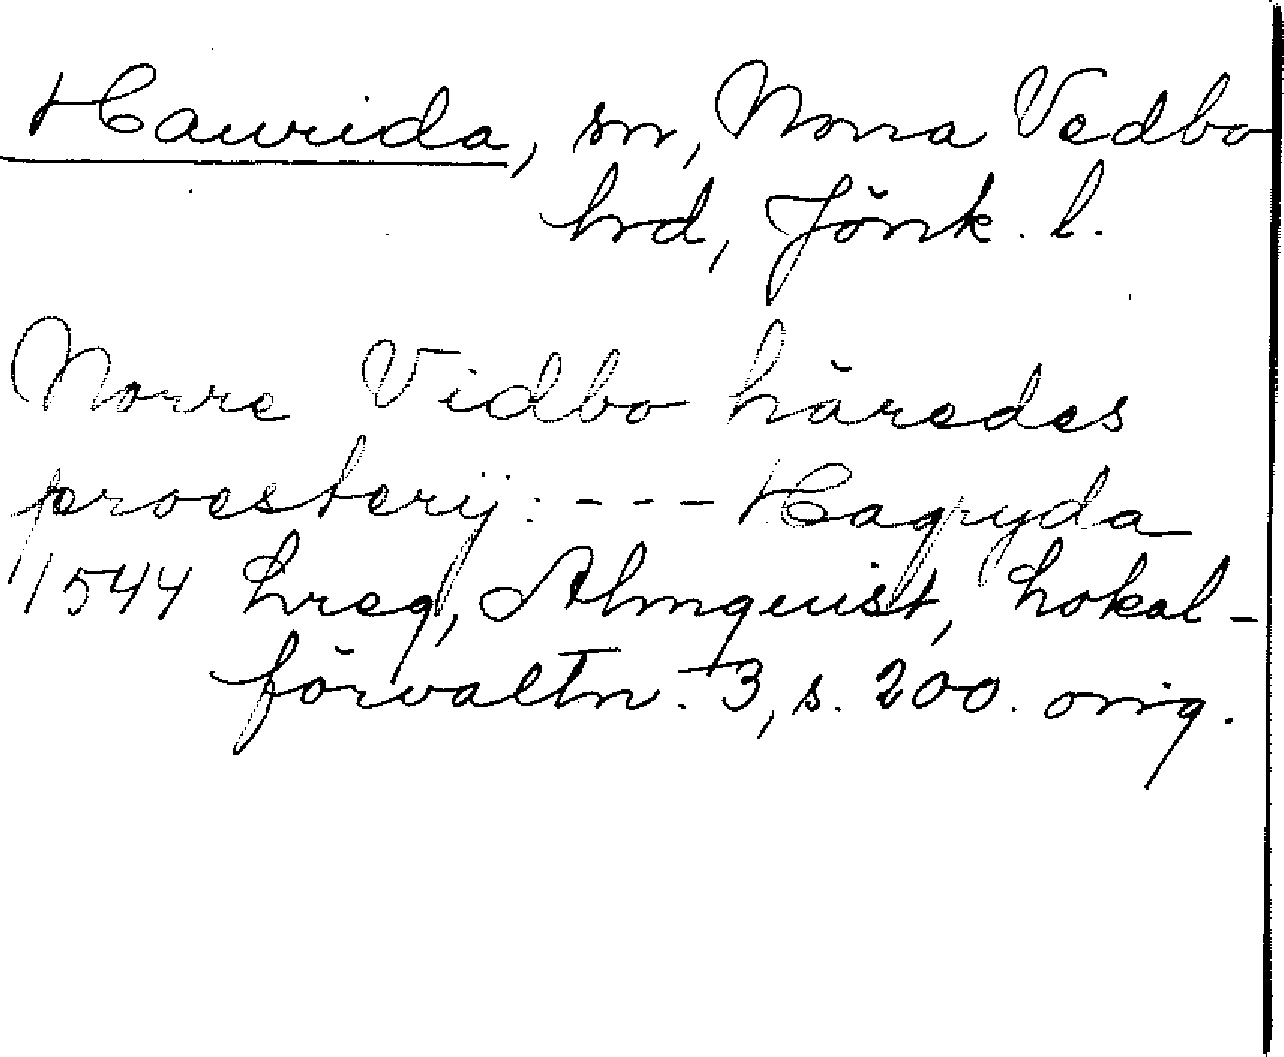 Haurida, sn, Norra Vedbo
hrd, Jönk. l.
Norre Vidbo häredes
proesterij: --- Hagryda
1544 hreg, Almquist, Lokal-
förvaltn. 3, s. 200. orig.